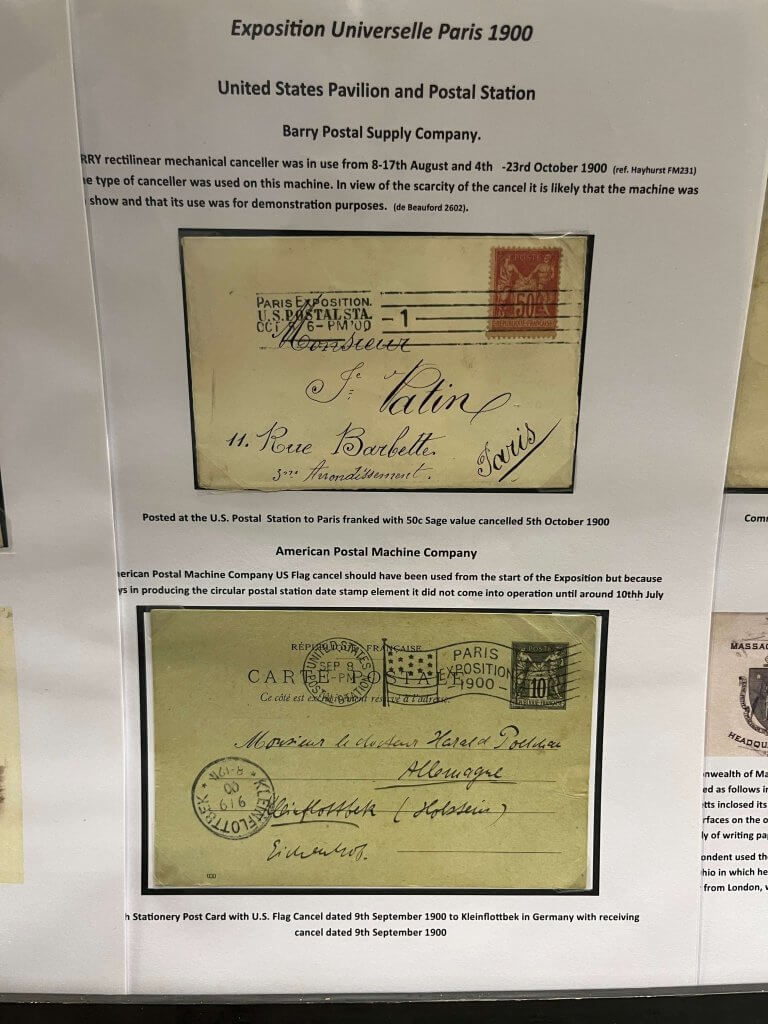 Exposition Universelle Paris 1900
United States Pavilion and Postal Station
Barry Postal Supply Company.
RRY rectilinear mechanical canceller was in use from 8-17th August and 4th -23rd October 1900 (ref. Hayhurst FM231)
e type of canceller was used on this machine. In view of the scarcity of the cancel it is likely that the machine was
show and that its use was for demonstration purposes. (de Beauford 2602).
POSTE
50
REPUBLIQUE FRANCAISE
PARIS EXPOSITION.
U.S. POSTAL STA.
OCT 5 6-PM '00
1
Monsieur
Je Vatin
11. Rue Barbette.
3me Arrondissement.
Paris
Posted at the U.S. Postal Station to Paris franked with 50c Sage value cancelled 5th October 1900
American Postal Machine Company
erican Postal Machine Company US Flag cancel should have been used from the start of the Exposition but because
ys in producing the circular postal station date stamp element it did not come into operation until around 10thh July
RÉPUBLIQUE FRANÇAISE
CARTE POSTALE
Ce côté est exclusivement réservé à l'adresse.
UNITED STATES
POSTAL STATION
SEP 8
-PM
PARIS
EXPOSITION
1900
POSTE
10
Monsieur le docteur Harald
Allemagne
Kleinflottbek (Holstein)
Eichenhof.
KLEINFLOTTBEK
9 / 9
00
8-12N
h Stationery Post Card with U.S. Flag Cancel dated 9th September 1900 to Kleinflottbek in Germany with receiving
cancel dated 9th September 1900
Com
MASSAC
HEADQU
nwealth of Ma
ed as follows in
tts inclosed its
rfaces on the o
ly of writing pa
ondent used the
hio in which he
from London, v